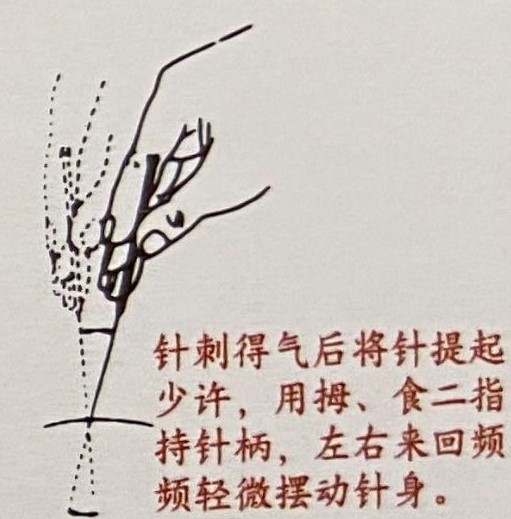 针刺得气后将针提起
少许，用拇、食二指
持针柄，左右来回频
频轻微摆动针身。